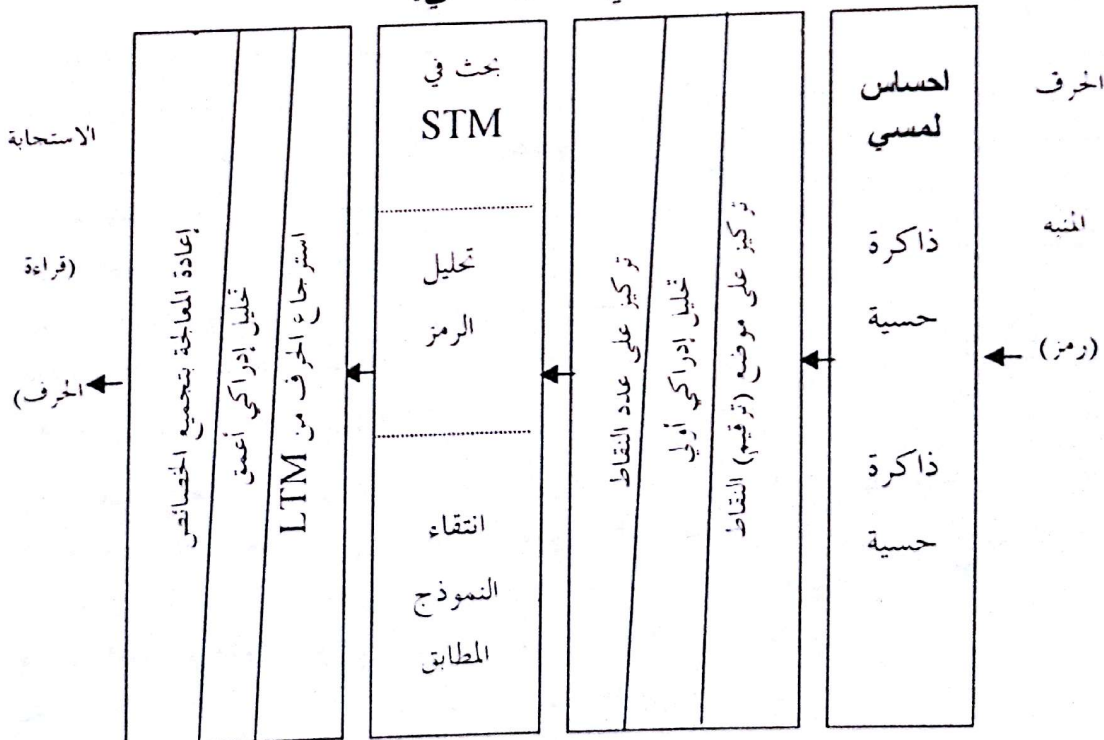 الحرف
المنبه
(رمز)
احساس
لمسي
ذاكرة
حسية
ذاكرة
حسية
تركيز على موضع (ترقيم) النقاط
تحليل إدراكي أولي
تركيز على عدد النقاط
بحث في
STM
تحليل
الرمز
انتقاء
النموذج
المطابق
استرجاع الحرف من LTM
تحليل إدراكي أعمق
إعادة المعالجة بتجميع الخصائص
الاستجابة
(قراءة
الحرف)